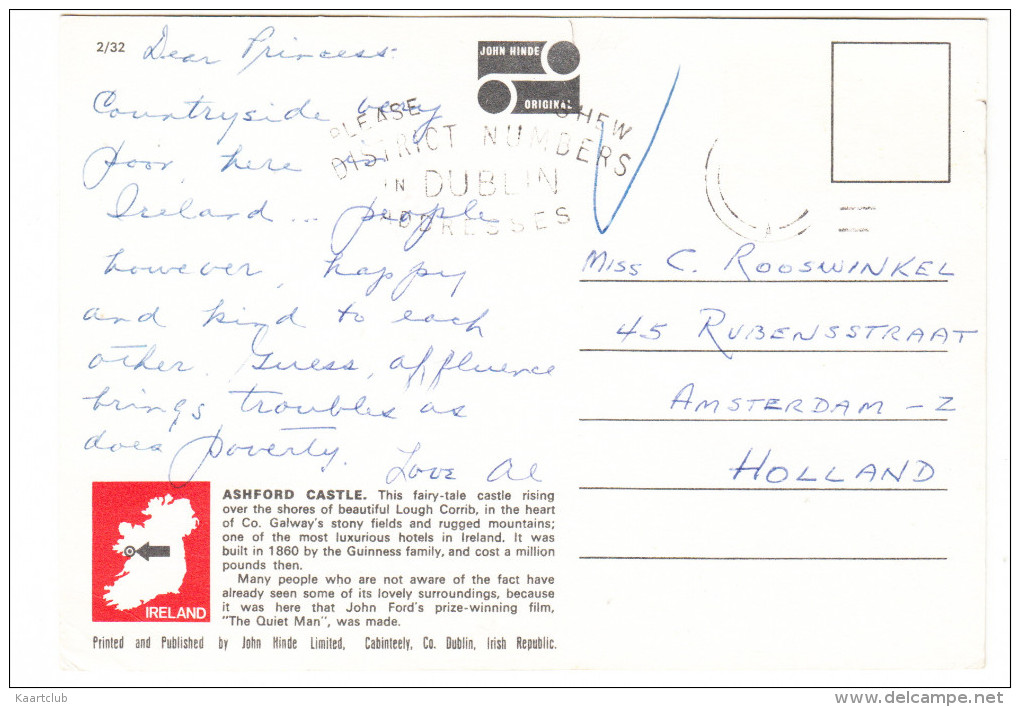 2/32
Dear Princess:
Countryside very
poor, here in
Ireland ... people
however, happy
and kind to each
other. Guess, affluence
brings troubles as
does poverty.
Love Al
JOHN HINDE
ORIGINAL
PLEASE SHEW
DISTRICT NUMBERS
IN DUBLIN
ADDRESSES
MISS C. ROOSWINKEL
45 RUBENSSTRAAT
AMSTERDAM - Z
HOLLAND
IRELAND
ASHFORD CASTLE. This fairy-tale castle rising
over the shores of beautiful Lough Corrib, in the heart
of Co. Galway's stony fields and rugged mountains;
one of the most luxurious hotels in Ireland. It was
built in 1860 by the Guinness family, and cost a million
pounds then.
Many people who are not aware of the fact have
already seen some of its lovely surroundings, because
it was here that John Ford's prize-winning film,
"The Quiet Man", was made.
Printed and Published by John Hinde Limited, Cabinteely, Co. Dublin, Irish Republic.
Kaartclub
www.delcampe.net